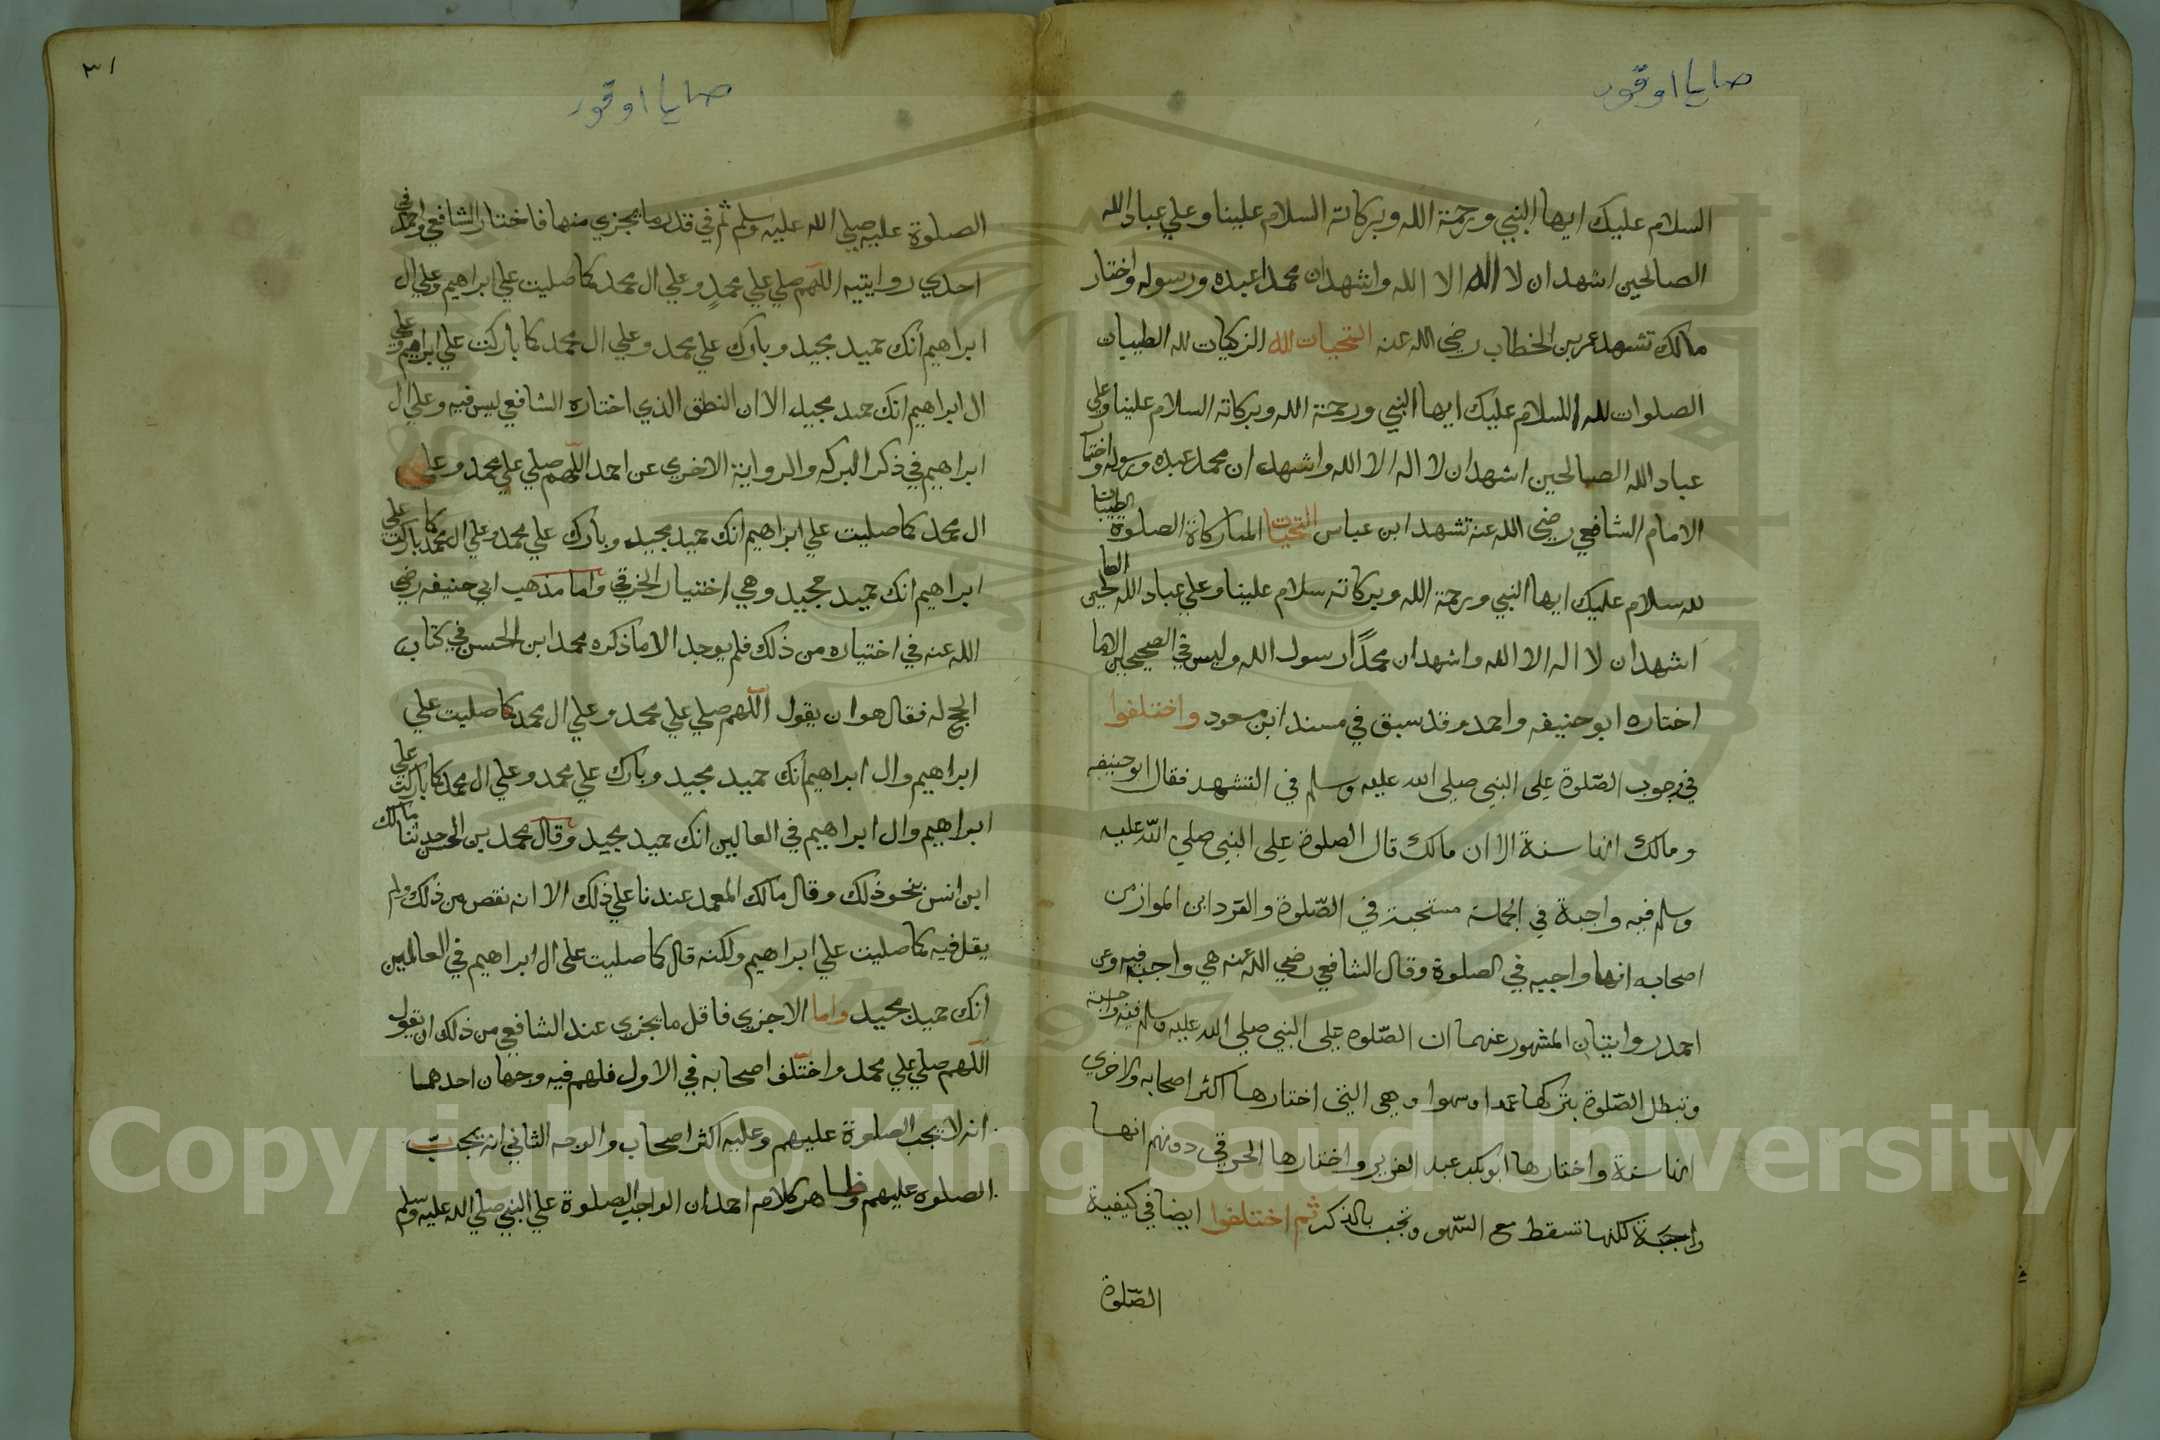 السلام عليك ايها النبي ورحمة الله وبركاته السلام علينا وعلي عباد الله
الصالحين اشهد ان لا اله الا الله واشهد ان محمدا عبده ورسوله واختار
مالك تشهد عمر بن الخطاب رضي الله عنه التحيات لله الزكيات لله الطيبات
الصلوات لله السلام عليك ايها النبي ورحمة الله وبركاته السلام علينا وعلي
عباد الله الصالحين اشهد ان لا اله الا الله واشهد ان محمد عبده ورسوله واختا
الامام الشافعي رضي الله عنه تشهد ابن عباس التحيات المباركاة الصلوة الطيبات
لله سلام عليك ايها النبي ورحمة الله وبركاته سلام علينا وعلي عباد الله الصالحين
اشهد ان لا اله الا الله واشهد ان محمدًا رسول الله وليس في الصحيحين الاما
اختاره ابو حنيفه واحمد وقد سبق في مسند ابن مسعود واختلفوا
في وجوب الصّلوة على النبي صلى الله عليه وسلم في التشهد فقال ابو حنيفه
ومالك انها سنة الا ان مالك قال الصلوة على النبي صلي الله عليه
وسلم فيه واجبة في الجملة مستحبة في الصّلوة والفرد ابن المواز من
اصحابه انها واجبه في الصلوة وقال الشافعي رضي الله عنه هي واجبه فيه وعن
احمد روايتان المشهور عنهما ان الصّلوه على النبي صلي الله عليه وسلم فيه واجبة
وتبطل الصّلوة بتركها عمدا وسهوا وهي التي اختارها اكثر اصحابه والاخري
انها سنة واختارها ابو بكر عبد العزيز واختارها الخرقي دونهم انها
واجبة لكنها تسقط مع السّهو وتجب بالذكر ثم اختلفوا ايضا في كيفية
الصّلوة
٣١
الصلوة عليه صلي الله عليه وسلم ثم في قدر ما يجزي منها فاختار الشافعي واحمد في
احدي روايتيه اللهم صلي علي محمدٍ وعلي ال محمد كما صليت علي ابراهيم وعلي ال
ابراهيم انك حميد مجيد وبارك علي محمد وعلي ال محمد كما باركت علي ابراهيم وعلي
ال ابراهيم انك حميد مجيد الا ان النطق الذي اختاره الشافعي ليس فيه وعلي ال
ابراهيم في ذكر البركه والرواية الاخري عن احمد اللهم صلي علي محمد وعلي
ال محمد كما صليت علي ابراهيم انك حميد مجيد وبارك علي محمد وعلي ال محمد كما باركت علي
ابراهيم انك حميد مجيد وهي اختيار الخرقي واما مذهب ابي حنيفه رضي
الله عنه في اختياره من ذلك فلم يوجد الا ما ذكره محمد ابن الحسن في كتاب
الحج له فقال هو ان يقول اللهم صلي علي محمد وعلي ال محمد كما صليت علي
ابراهيم وال ابراهيم انك حميد مجيد وبارك علي محمد وعلي ال محمد كما باركت علي
ابراهيم وال ابراهيم في العالمين انك حميد مجيد وقال محمد بن الحسن حدثنا مالك
ابن انس بنحو ذلك وقال مالك المعمد عندنا علي ذلك الا انه نقص من ذلك ولم
يقل فيه كما صليت علي ابراهيم ولكنه قال كما صليت على ال ابراهيم في العالمين
انك حميد مجيد واما الاجزي فاقل ما يجزي عند الشافعي من ذلك ان يقول
اللهم صلي علي محمد واختلف اصحابه في الاول فلهم فيه وجهان احدهما
انه لا تجب الصلوة عليهم وعليه اكثر اصحاب والوجه الثاني انه تجب
الصلوه عليهم وظاهر كلام احمد ان الواجب الصلوة علي النبي صلي الله عليه وسلم
Copyright © King Saud University